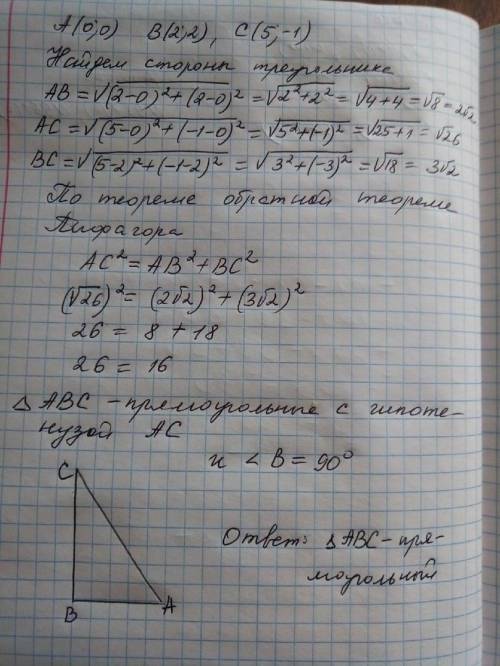 A(0;0) B(2;2), C(5;-1)
Найдем стороны треугольника
AB=√(2-0)²+(2-0)²=√2²+2²=√4+4=√8=2√2
AC=√(5-0)²+(-1-0)²=√5²+(-1)²=√25+1=√26
BC=√(5-2)²+(-1-2)²=√3²+(-3)²=√18=3√2
По теореме обратной теореме
Пифагора
AC²=AB²+BC²
(√26)²=(2√2)²+(3√2)²
26=8+18
26=16
△ABC-прямоугольные с гипоте-
нузой AC
и <B=90°
C
B
A
Ответ: △ABC-пря-
моугольный